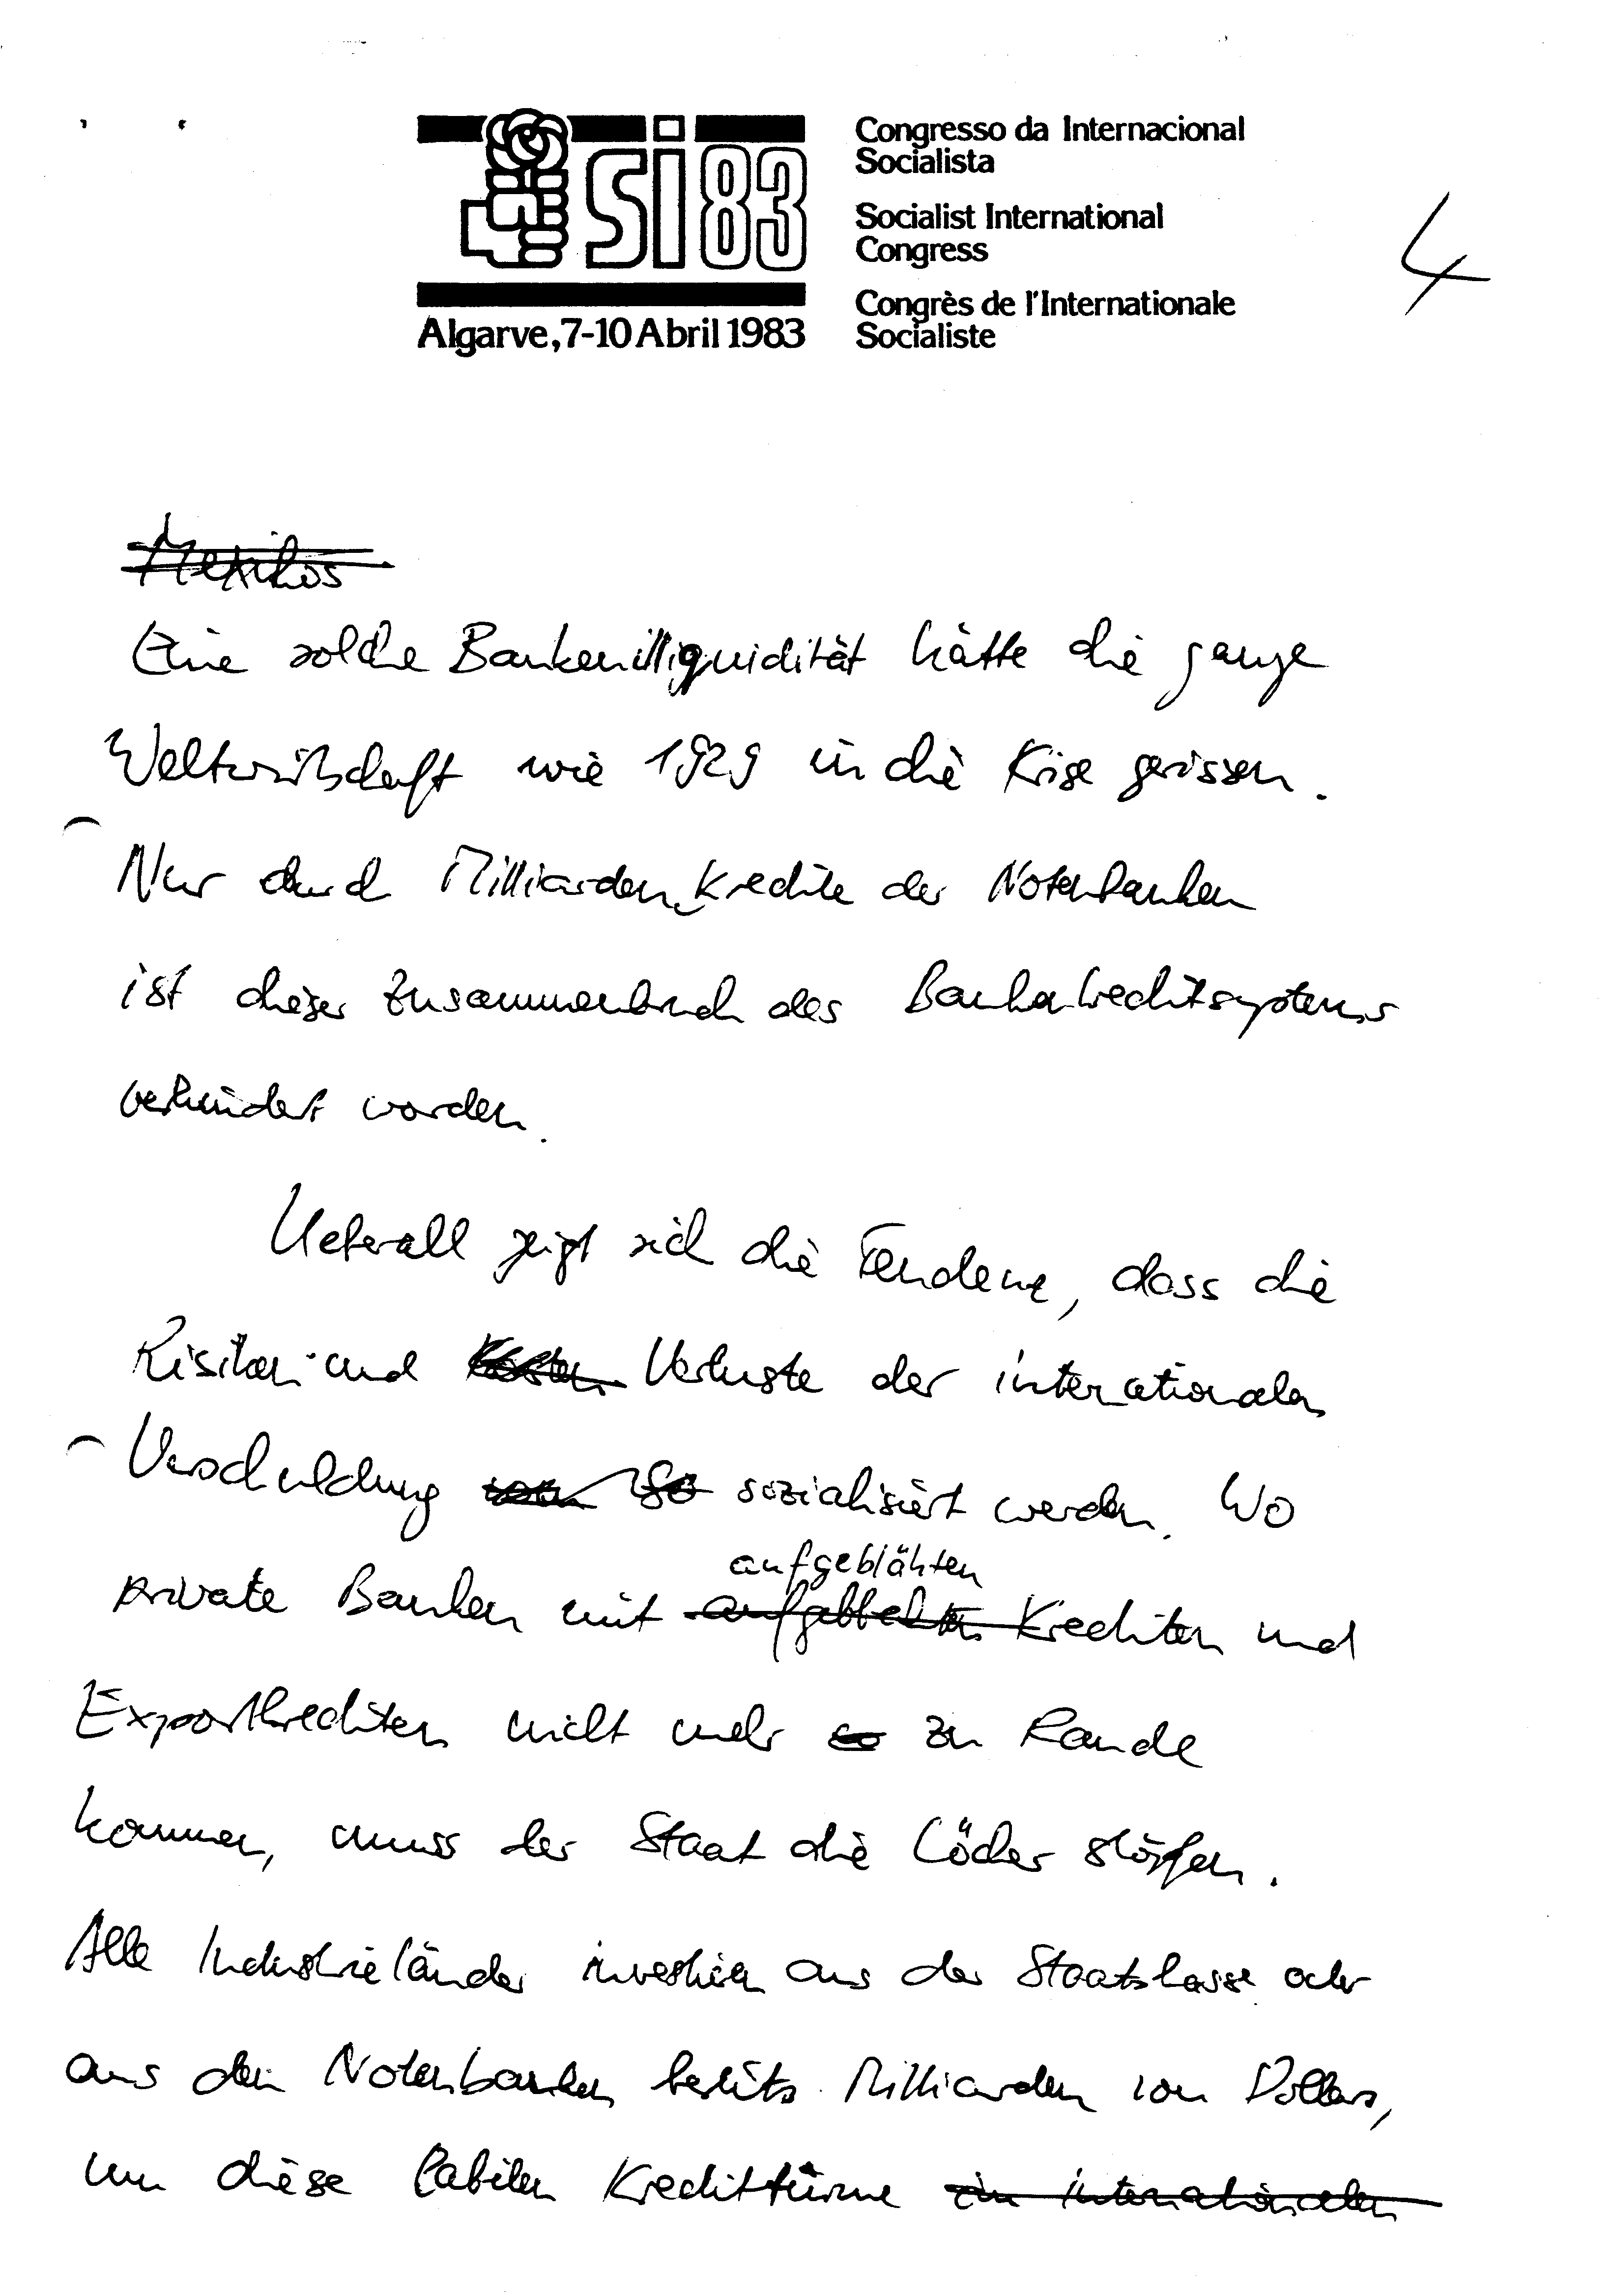 si 83
Algarve, 7-10 Abril 1983
Congresso da Internacional
Socialista
Socialist International
Congress
Congrès de l'Internationale
Socialiste
4
Mexikos
Eine solche Bankenilliquidität hätte die ganze
Weltwirtschaft wie 1929 in die Krise gerissen.
Nur durch Milliarden Kredite der Notenbanken
ist dieser Zusammenbruch des Bankenkreditsystems
verhindert worden.
Ueberall zeigt sich die Tendenz, dass die
Risiken und Kosten Verluste der internationalen
Verschuldung so sozialisiert werden. Wo
aufgeblähten
private Banken mit Krediten und
Exportkrediten nicht mehr zu Rande
kommen, muss der Staat die Löcher stopfen.
Alle Industrieländer investieren aus der Staatskasse oder
aus den Notenbanken bereits Milliarden von Dollars,
um diese labilen Kredittürme im internationalen